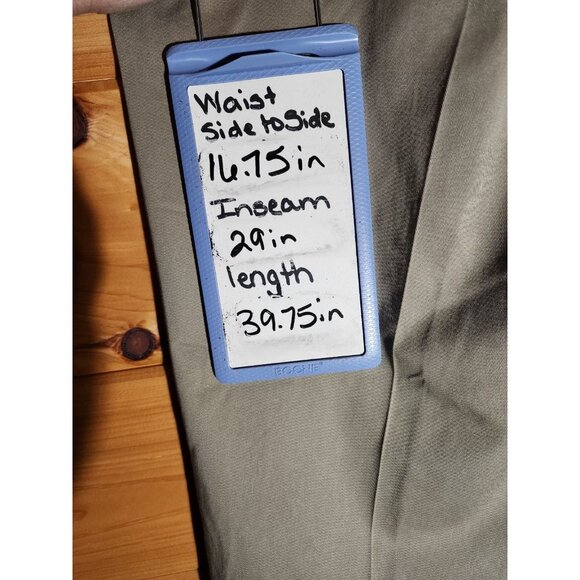 Waist
Side to Side
16.75 in
Inseam
29 in
length
39.75 in
BOONIE